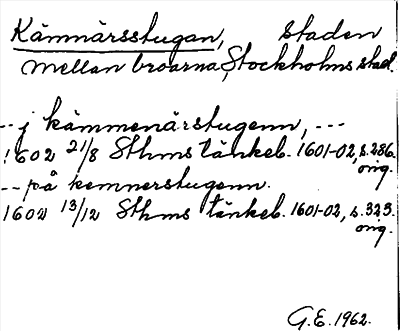 Kämnärsstugan, staden
mellan broarna, Stockholms stad.
-- j kämmenärstugenn, ---
1602 21/8 Sthms tänkeb. 1601-02, s. 286.
orig.
-- på kemnerstugenn.
1602 13/12 Sthms tänkeb. 1601-02, s. 323.
orig.
G.E. 1962.